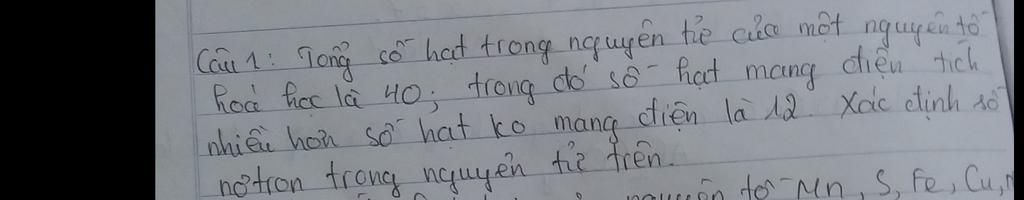 Câu 1: Tổng số hạt trong nguyên tử của một nguyên tố
hoá học là 40; trong đó số hạt mang điện tích
nhiều hơn số hạt ko mang điện là 12. Xác định số
nơtron trong nguyên tử trên.
nguyên tố Mn, S, Fe, Cu,